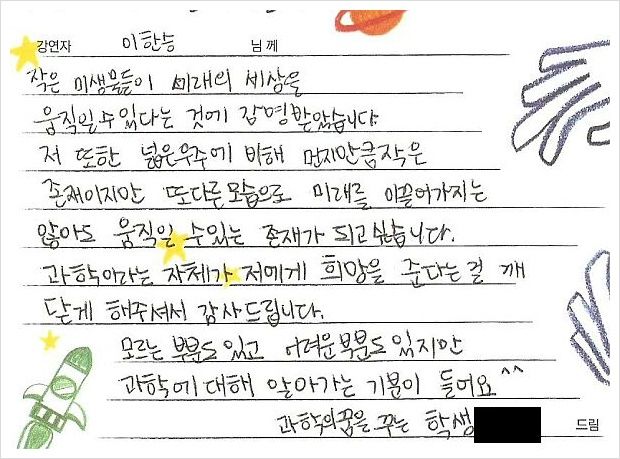 강연자 이한승 님께
작은 미생물들이 미래의 세상을
움직일수있다는 것에 감명받았습니다
저 또한 넓은우주에 비해 먼지만큼작은
존재이지만 또다른모습으로 미래를 이끌어가지는
않아도 움직일 수있는 존재가 되고싶습니다.
과학이라는 자체가 저에게 희망을 준다는걸 깨
닫게 해주셔서 감사드립니다.
모르는 부분도 있고 어려운부분도 있지만
과학에대해 알아가는 기분이 들어요^^
과학의꿈을 꾸는 학생
드림